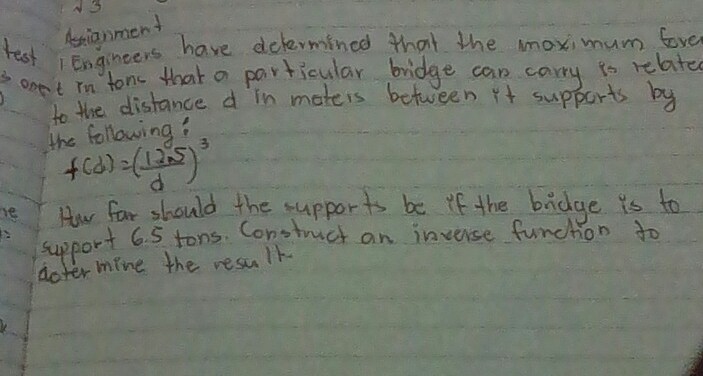 √3
Assignment
test 1 Engineers have determined that the maximum force
t in tons that a particular bridge can carry is related
to the distance d in meters between it supports by
the following:
f(d) = (12.5/d)³
How far should the supports be if the bridge is to
support 6.5 tons. Construct an inverse function to
determine the result.